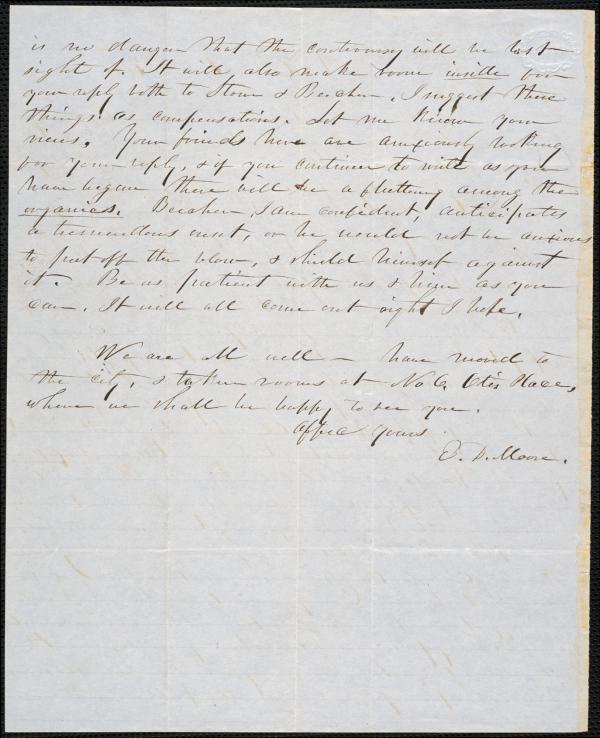 is no danger that the controversy will be lost
sight of. It will also make room inside for
your reply both to Stowe & Beecher. I suggest these
things as compensations. Let me know your
views. Your friends here are anxiously looking
for your reply, & if you continue to write as you
have begun there will be a fluttering among the
organics. Beecher, I am confident, anticipates
a tremendous onset, or he would not be anxious
to put off the blow, & shield himself against
it. Be as patient with us & him as you
can. It will all come out right I hope.
We are all well — have moved to
the city, & taken rooms at No 6. Otis Place,
where we shall be happy to see you.
Affec yours
E. D. Moore.